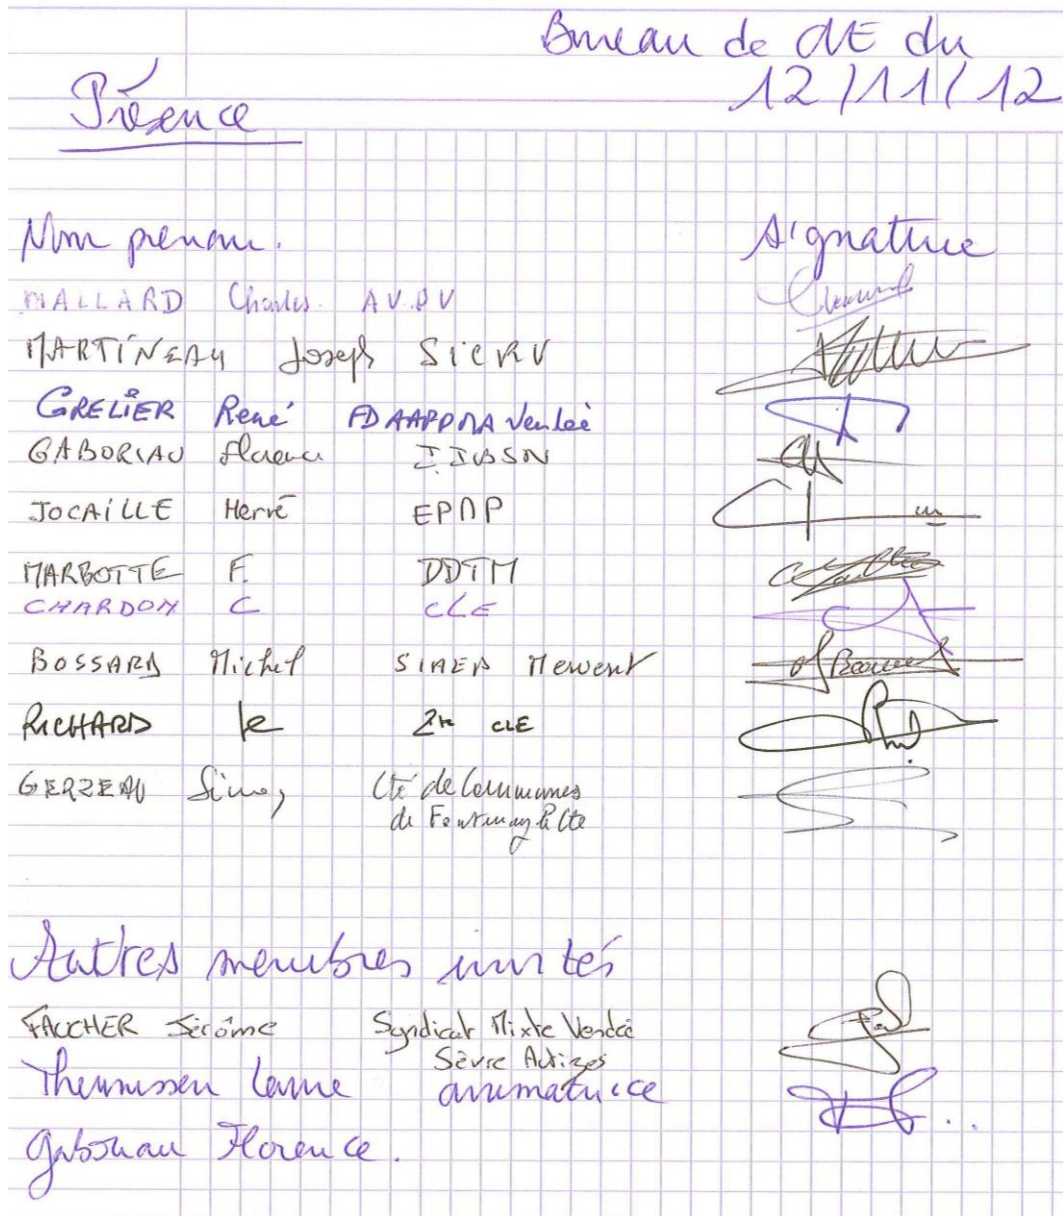 Bureau de CLE du
12/11/12
Présence
Nom prenom. Signature
MALLARD Charles. AV.PV
MARTINEAU Joseph SICRV
GRELIER René FDAAPPMA Vendée
GABORIAU Florence IIBSN
JOCAILLE Hervé EPMP
MARBOTTE F. DDTM
CHARDON C CLE
BOSSARD Michel SIAEP Mervent
RICHARD CLE
GERZEAU Cté de Communes
de Fontenay le Cte
Autres membres invités
FAUCHER Jérôme Syndicat Mixte Vendée
Sèvre Autizes
Theunissen animatrice
Gaboriau Florence.